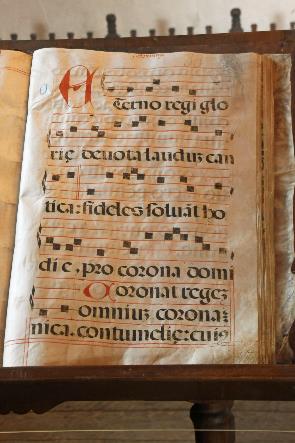 Aeterno regi glo
rię devota laudum can
tica: fideles solvāt ho
die, pro corona domi
Coronat regem
omnium corona
nica. contumelię: cuius